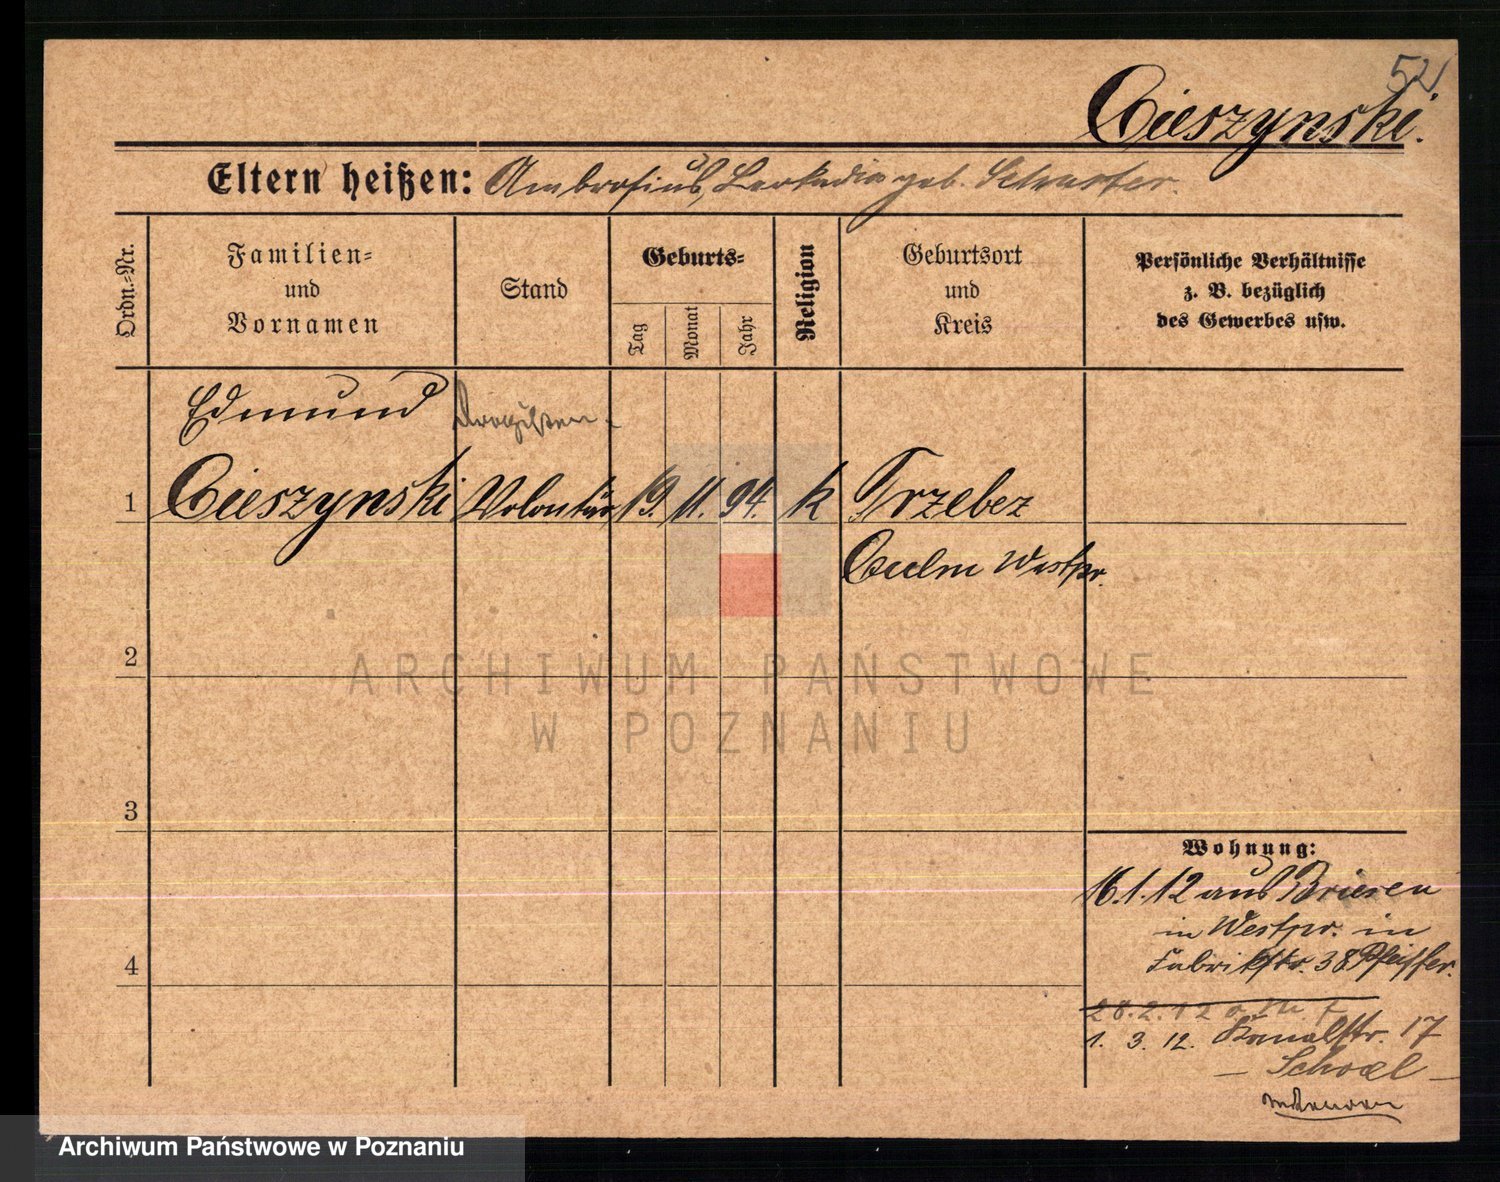 52
Cieszynski.
Eltern heißen: Ambrosius, Leokadia geb. Schuster.
Ordn.=Nr.
Familien=
und
Vornamen
Stand
Geburts=
Tag
Monat
Jahr
Religion
Geburtsort
und
Kreis
Persönliche Verhältnisse
z. B. bezüglich
des Gewerbes usw.
Edmund Drogisten-
1 Cieszynski Volontär 19. 11. 94. k Trzebcz
Culm Westpr.
2
ARCHIWUM PAŃSTWOWE
W POZNANIU
3
Wohnung:
16.1.12 aus Briesen
in Westpr. in
4
Fabrikstr. 38 Pfeiffer.
28.2.12
1. 3. 12. Kanalstr. 17
Archiwum Państwowe w Poznaniu